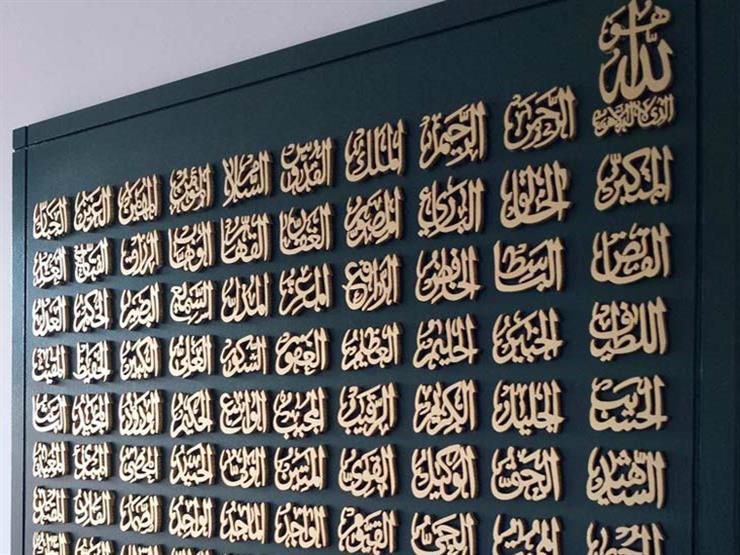 هو
الله
الذي لا إله إلا هو
الرحمن الرحيم الملك القدوس السلام المؤمن المهيمن العزيز الجبار
المتكبر الخالق البارئ المصور الغفار القهار الوهاب الرزاق الفتاح العليم
القابض الباسط الخافض الرافع المعز المذل السميع البصير الحكم العدل
اللطيف الخبير الحليم العظيم الغفور الشكور العلي الكبير الحفيظ المقيت
الحسيب الجليل الكريم الرقيب المجيب الواسع الحكيم الودود المجيد الباعث
الشهيد الحق الوكيل القوي المتين الولي الحميد المحصي المبدئ المعيد
المميت الحي القيوم الواجد الماجد الواحد الصمد القادر المقتدر